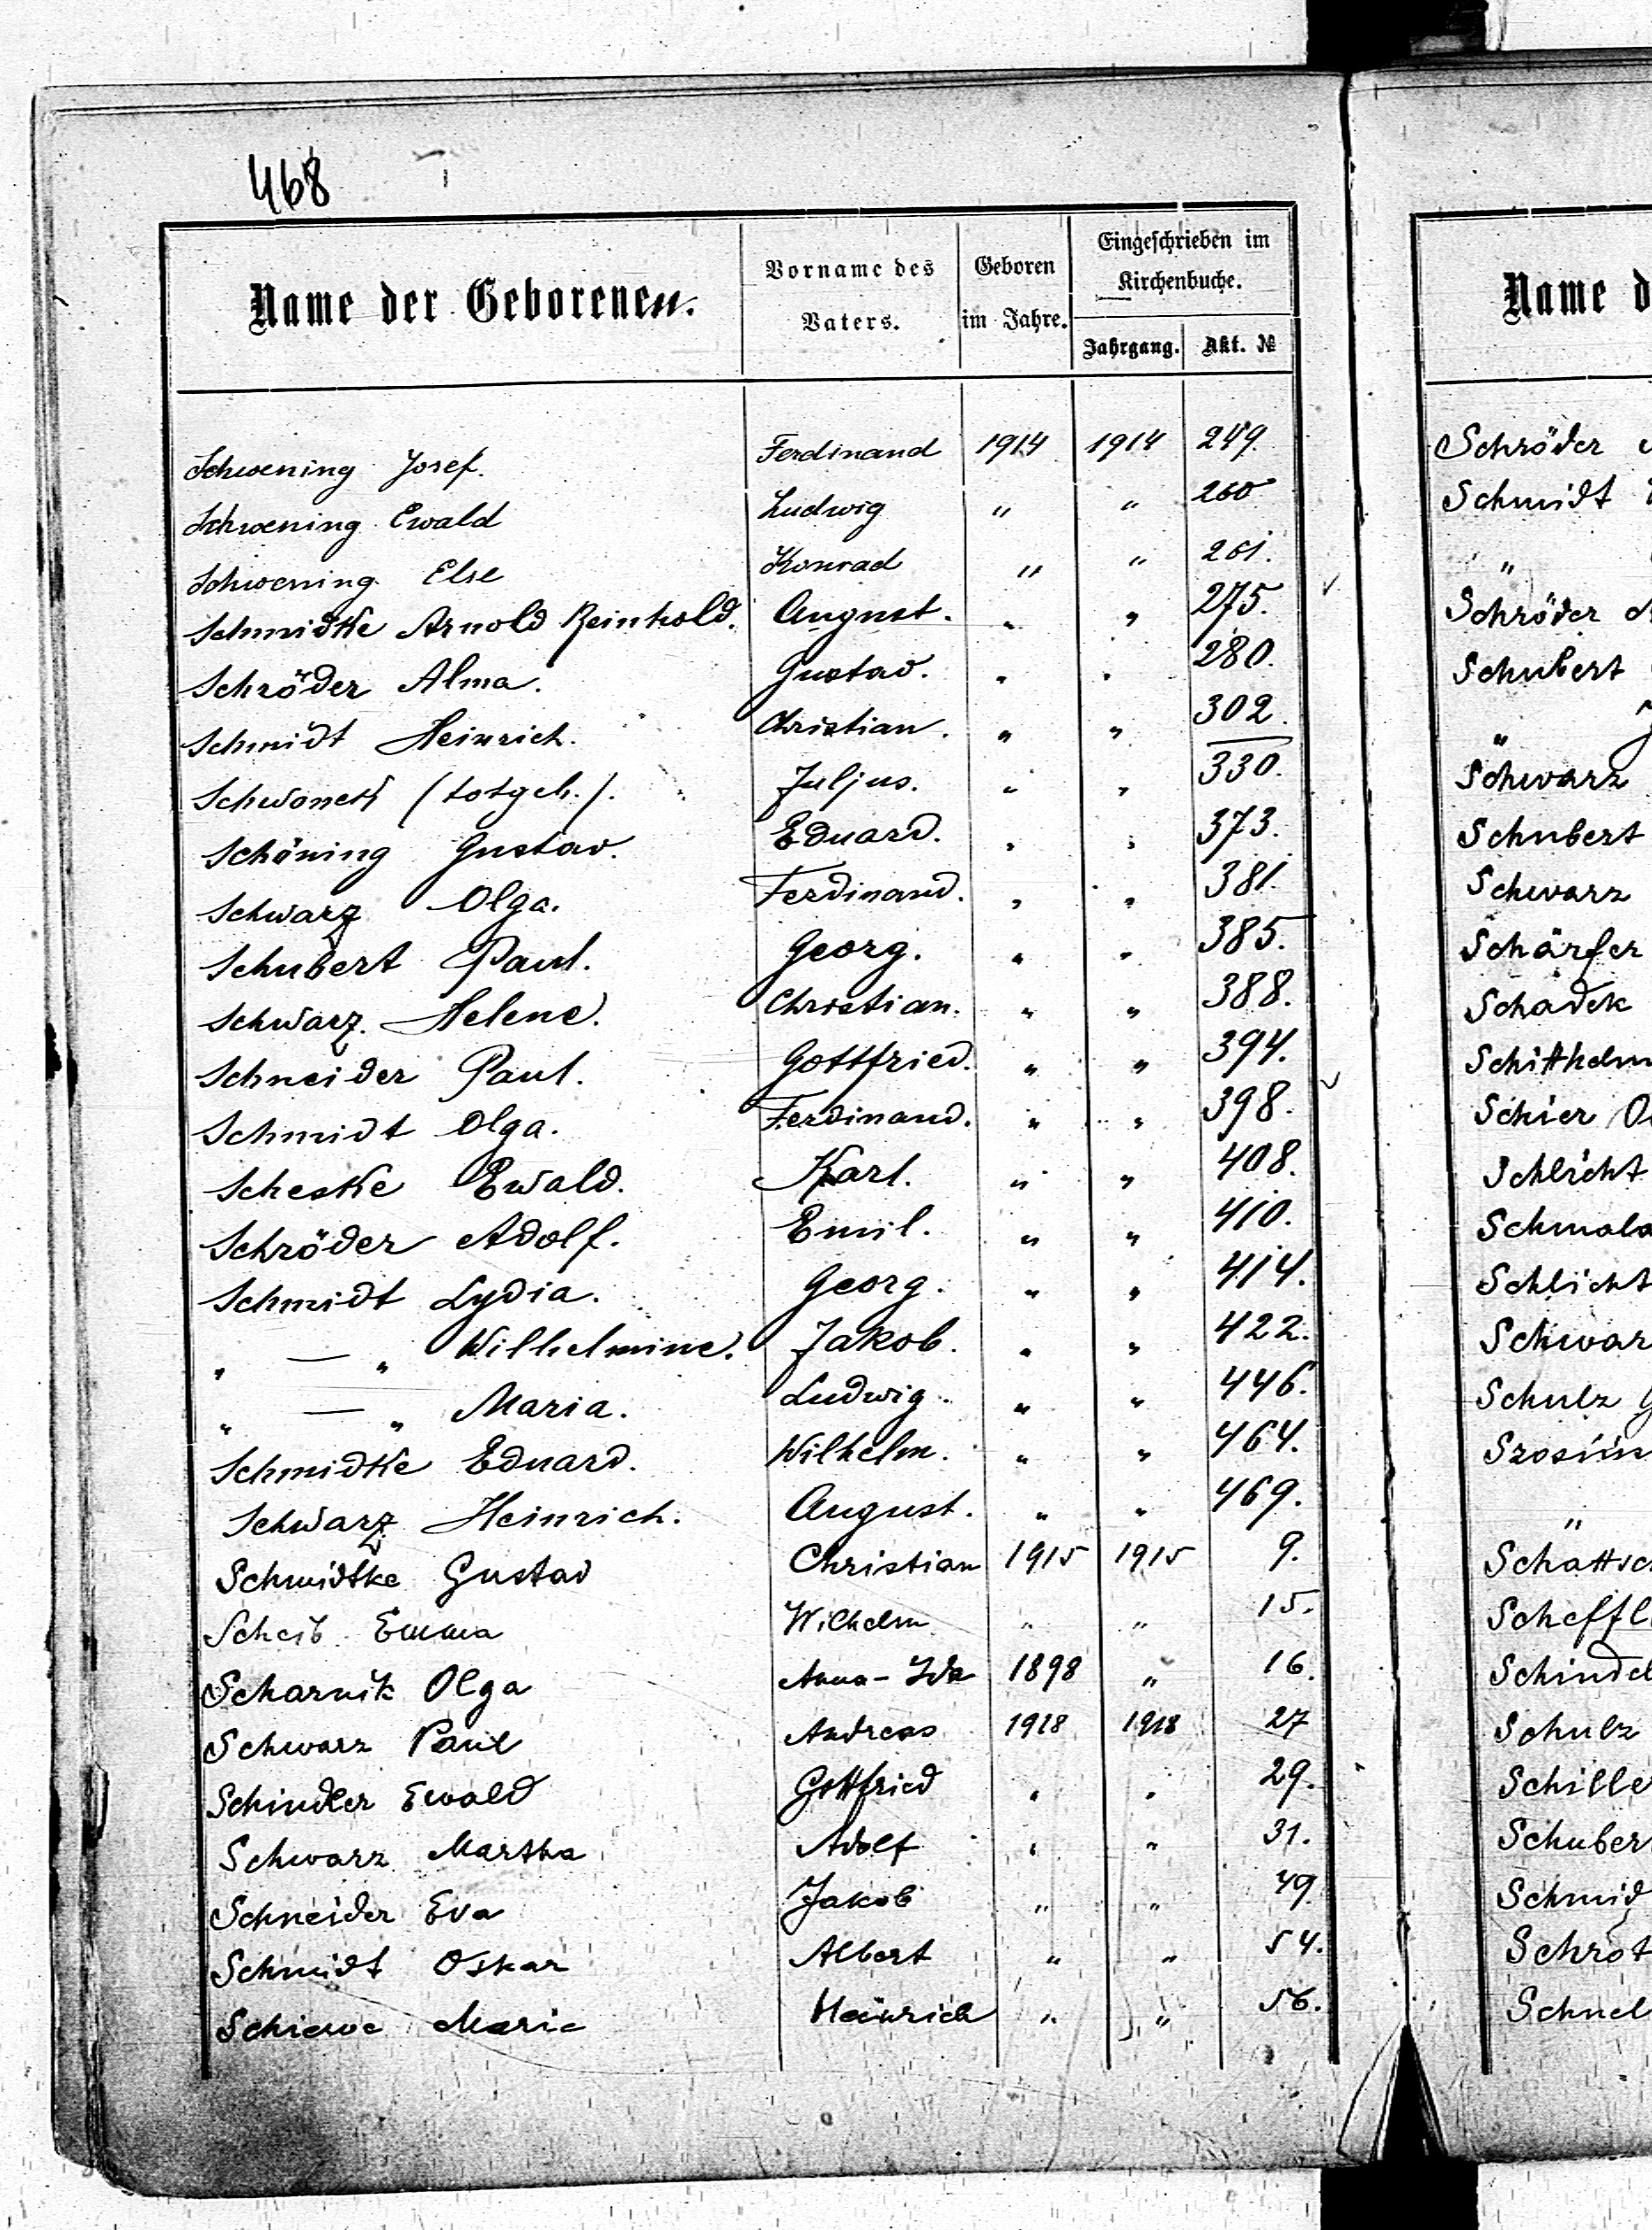 468
Name der Geborenen. Vorname des Vaters. Geboren im Jahre. Eingeschrieben im Kirchenbuche. Jahrgang. Akt. №
Schwening Josef. Ferdinand 1914 1914 249.
Schwening Ewald Ludwig " " 260
Schwening Else Konrad " " 261.
Schmidke Arnold Reinhold. August. " " 275.
Schröder Alma. Gustav. " " 280.
Schmidt Heinrich. Christian. " " 302.
(totgeb.). Juljus. " " 330.
Schöning Gustav. Eduard. " " 373.
Schwarz Olga. Ferdinand. " " 381.
Schubert Paul. Georg. " " 385.
Schwarz. Helene. Christian. " " 388.
Schneider Paul. Gottfried. " " 394.
Schmidt Olga. Ferdinand. " " 398.
Scheske Ewald. Karl. " " 408.
Schröder Adolf. Emil. " " 410.
Schmidt Lydia. Georg. " " 414.
" — " Wilhelmine. Jakob. " " 422.
" — " Maria. Ludwig. " " 446.
Schmidke Eduard. Wilhelm. " " 464.
Schwarz Heinrich. August. " " 469.
Schmidtke Gustav Christian 1915 1915 9.
Scheib Emma Wilhelm " " 15.
Scharnik Olga Anna-Ida 1898 " 16.
Schwarz Paul Andreas 1918 1918 27
Schindler Ewald Gottfried " " 29.
Schwarz Martha Adolf " " 31.
Schneider Eva Jakob " " 49
Schmidt Oskar Albert " " 54.
Schiewe Marie Heinrich " " 56.
Name d
Schröder
Schmidt
"
Schröder
Schubert
"
Schwarz
Schubert
Schwarz
Schärfer
Schadek
Schitthelm
Schier
Schlicht
Schmala
Schlicht
Schwar
Schulz
"
Schattsc
Scheffl
Schindel
Schulz
Schille
Schuber
Schmid
Schröt
Schnel